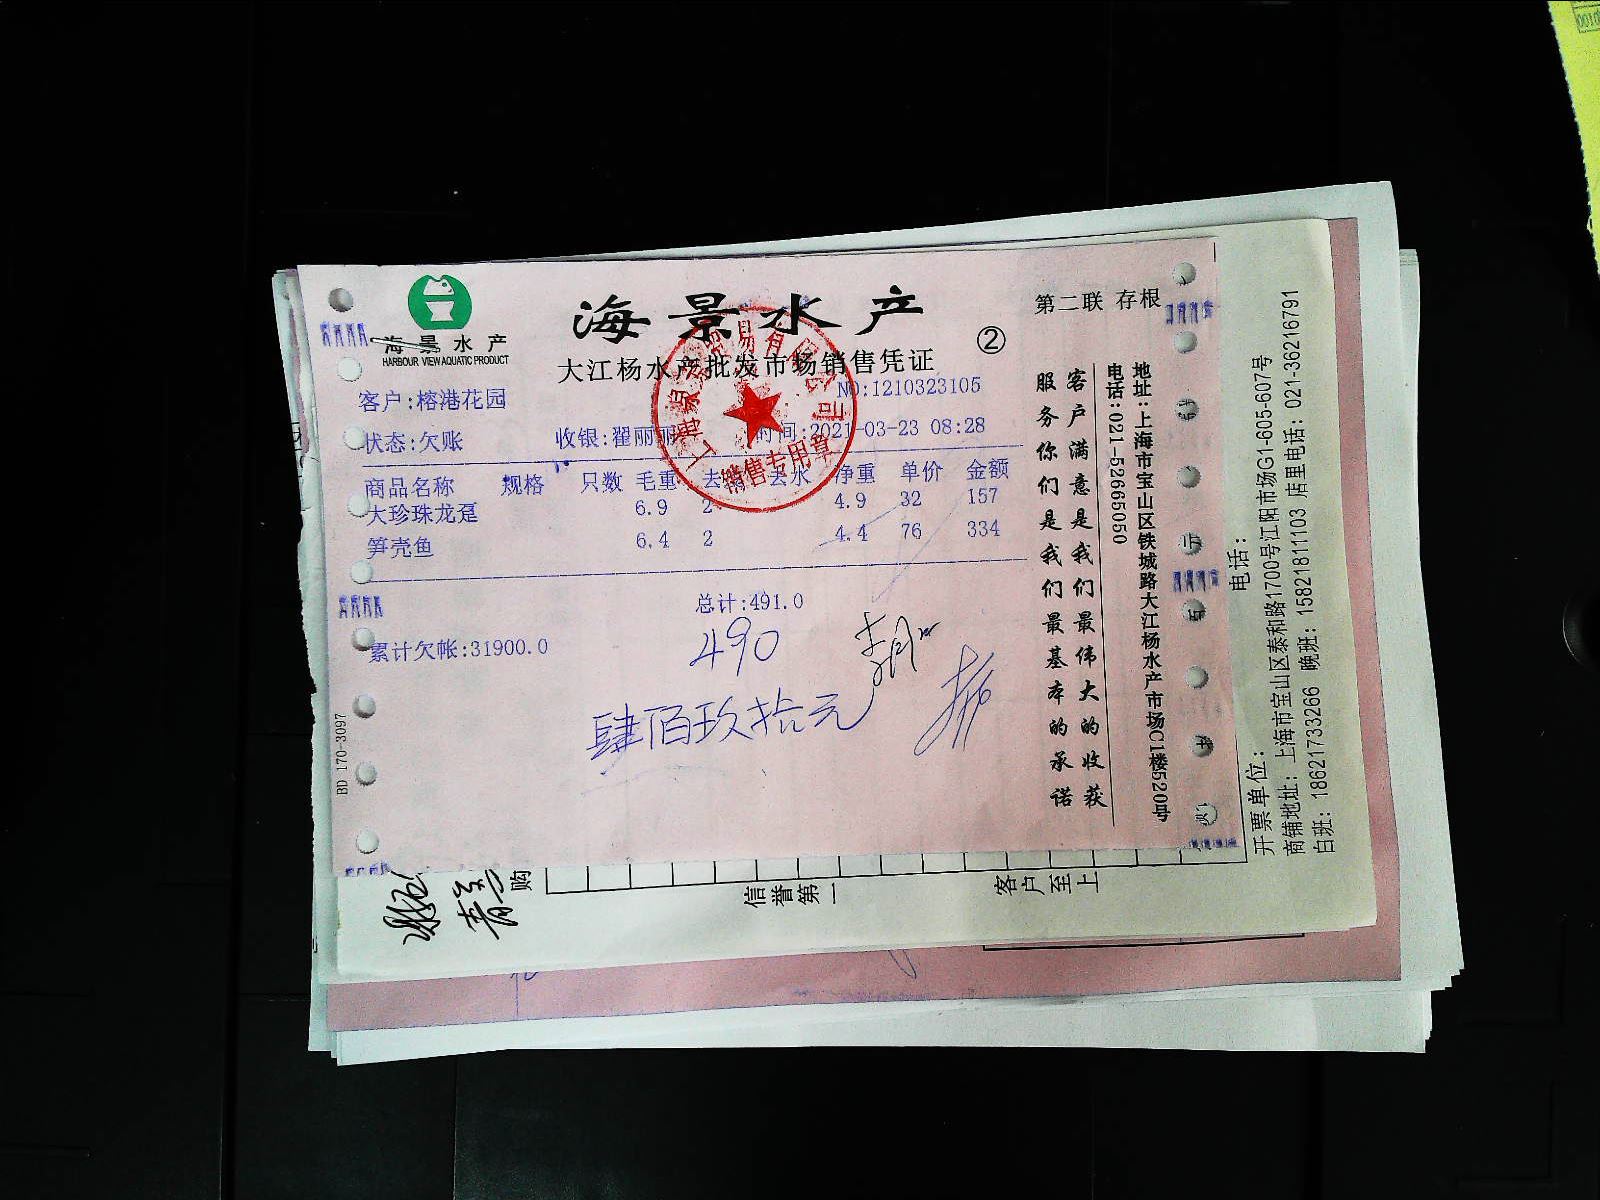 海景水产
HARBOUR VIEW AQUATIC PRODUCT
海景水产
大江杨水产批发市场销售凭证
②
第二联 存根
客户:榕港花园
NO:1210323105
状态:欠账
收银:翟丽丽
时间:2021-03-23 08:28
商品名称 规格 只数 毛重 去 去水 净重 单价 金额
大珍珠龙趸 6.9 2 4.9 32 157
笋壳鱼 6.4 2 4.4 76 334
总计:491.0
累计欠帐:31900.0
490
肆佰玖拾元
销售专用章
BD 170-3097
客户满意是我们最伟大的收获
服务你们是我们最基本的承诺
地址:上海市宝山区铁城路大江杨水产市场C1楼520号
电话:021-52665050
电话:
开票单位:
商铺地址: 上海市宝山区泰和路1700号江阳市场G1-605-607号
白班: 18621733266 晚班: 15821811103 店里电话: 021-36216791
购
信誉第一
客户至上